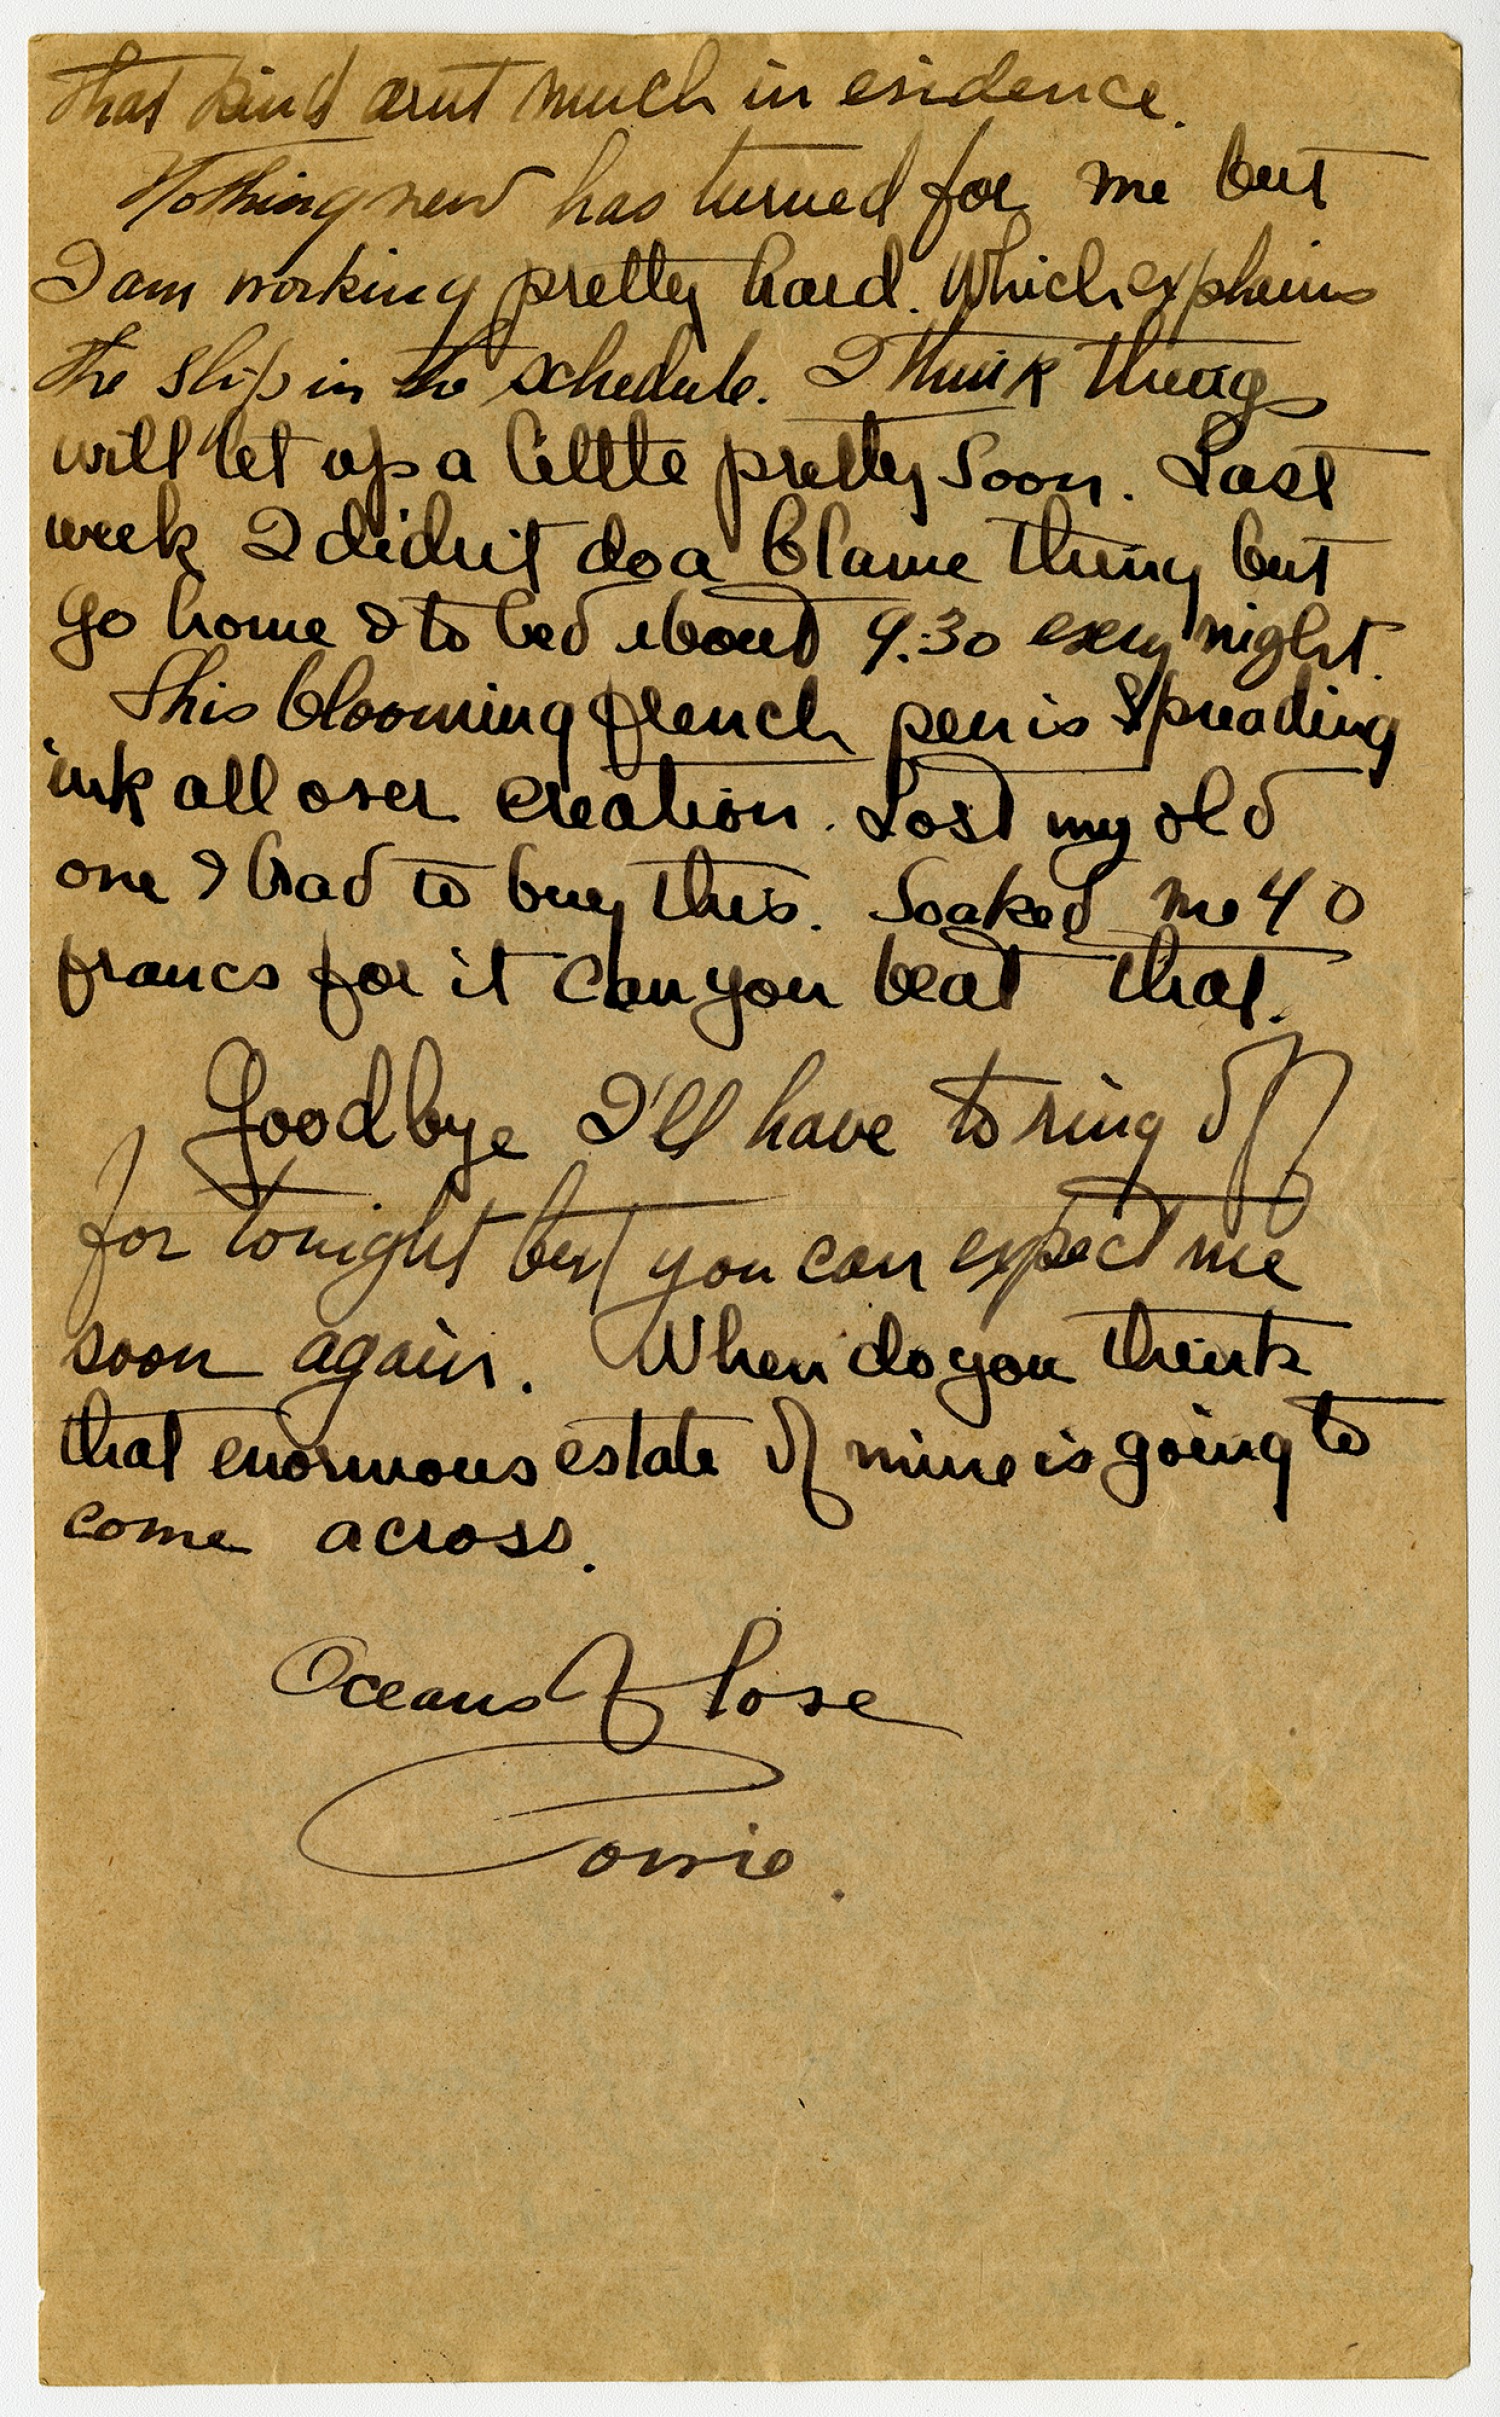 that kind arnt much in evidence.
Nothing new has turned for me but
I am working pretty hard. Which explains
the slip in the schedule. I think things
will let up a little pretty soon. Last
week I didn't do a blame thing but
go home & to bed about 9.30 every night.
This blooming french pen is spreading
ink all over creation. Lost my old
one & had to buy this. Soaked me 40
francs for it can you beat that.
Goodbye I'll have to ring off
for tonight but you can expect me
soon again. When do you think
that enormous estate of mine is going to
come across.
Oceans of love